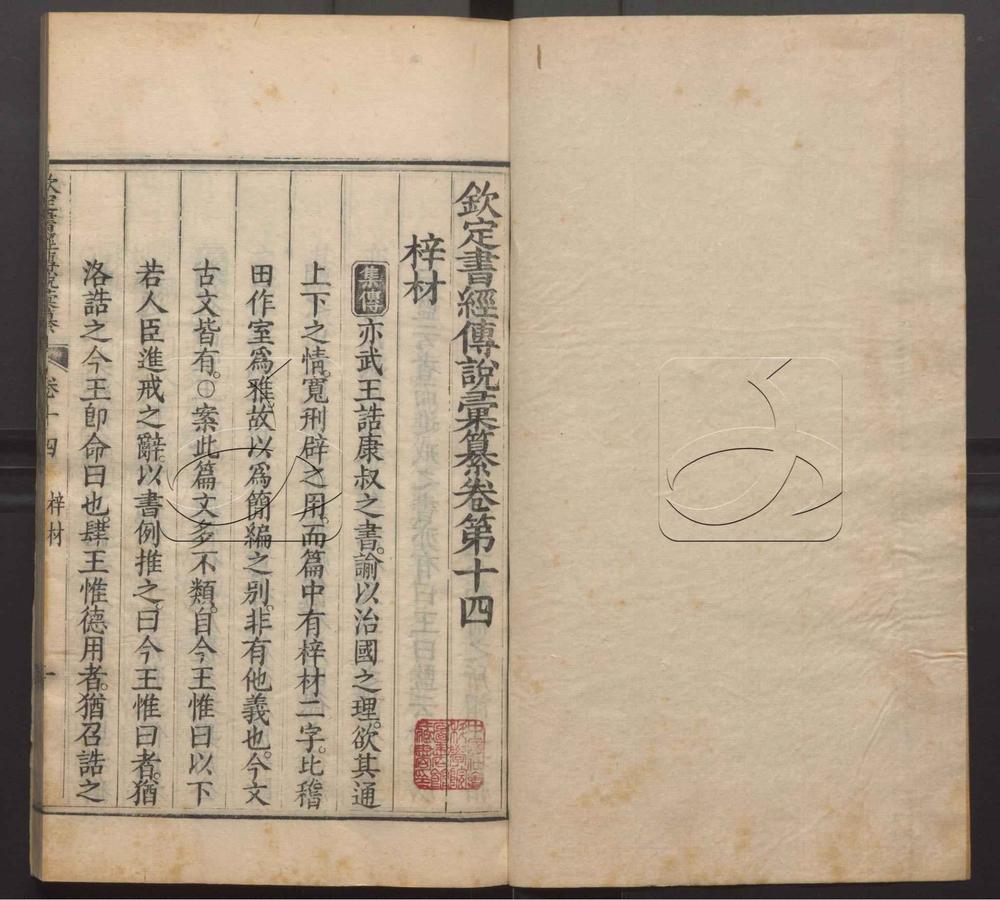 欽定書經傳說彙纂卷第十四
梓材
集傳亦武王誥康叔之書。諭以治國之理。欲其通
上下之情。寬刑辟之用。而篇中有梓材二字。比稽
田作室爲雅。故以爲簡編之别。非有他義也。今文
古文皆有。○案此篇文多不類。自今王惟曰以下
若人臣進戒之辭。以書例推之。曰今王惟曰者。猶
洛誥之今王卽命曰也。肆王惟德用者。猶召誥之
欽定書經傳說彙纂 卷十四 梓材 一